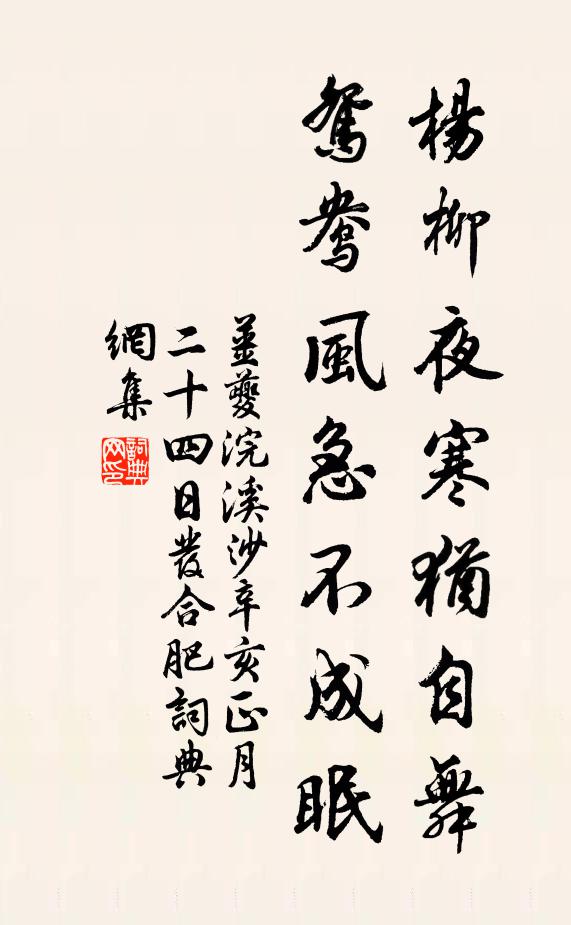 楊柳夜寒猶自舞
鴛鴦風急不成眠
姜夔浣溪沙辛亥正月
二十四日發合肥詞典
網集
詞典
网印